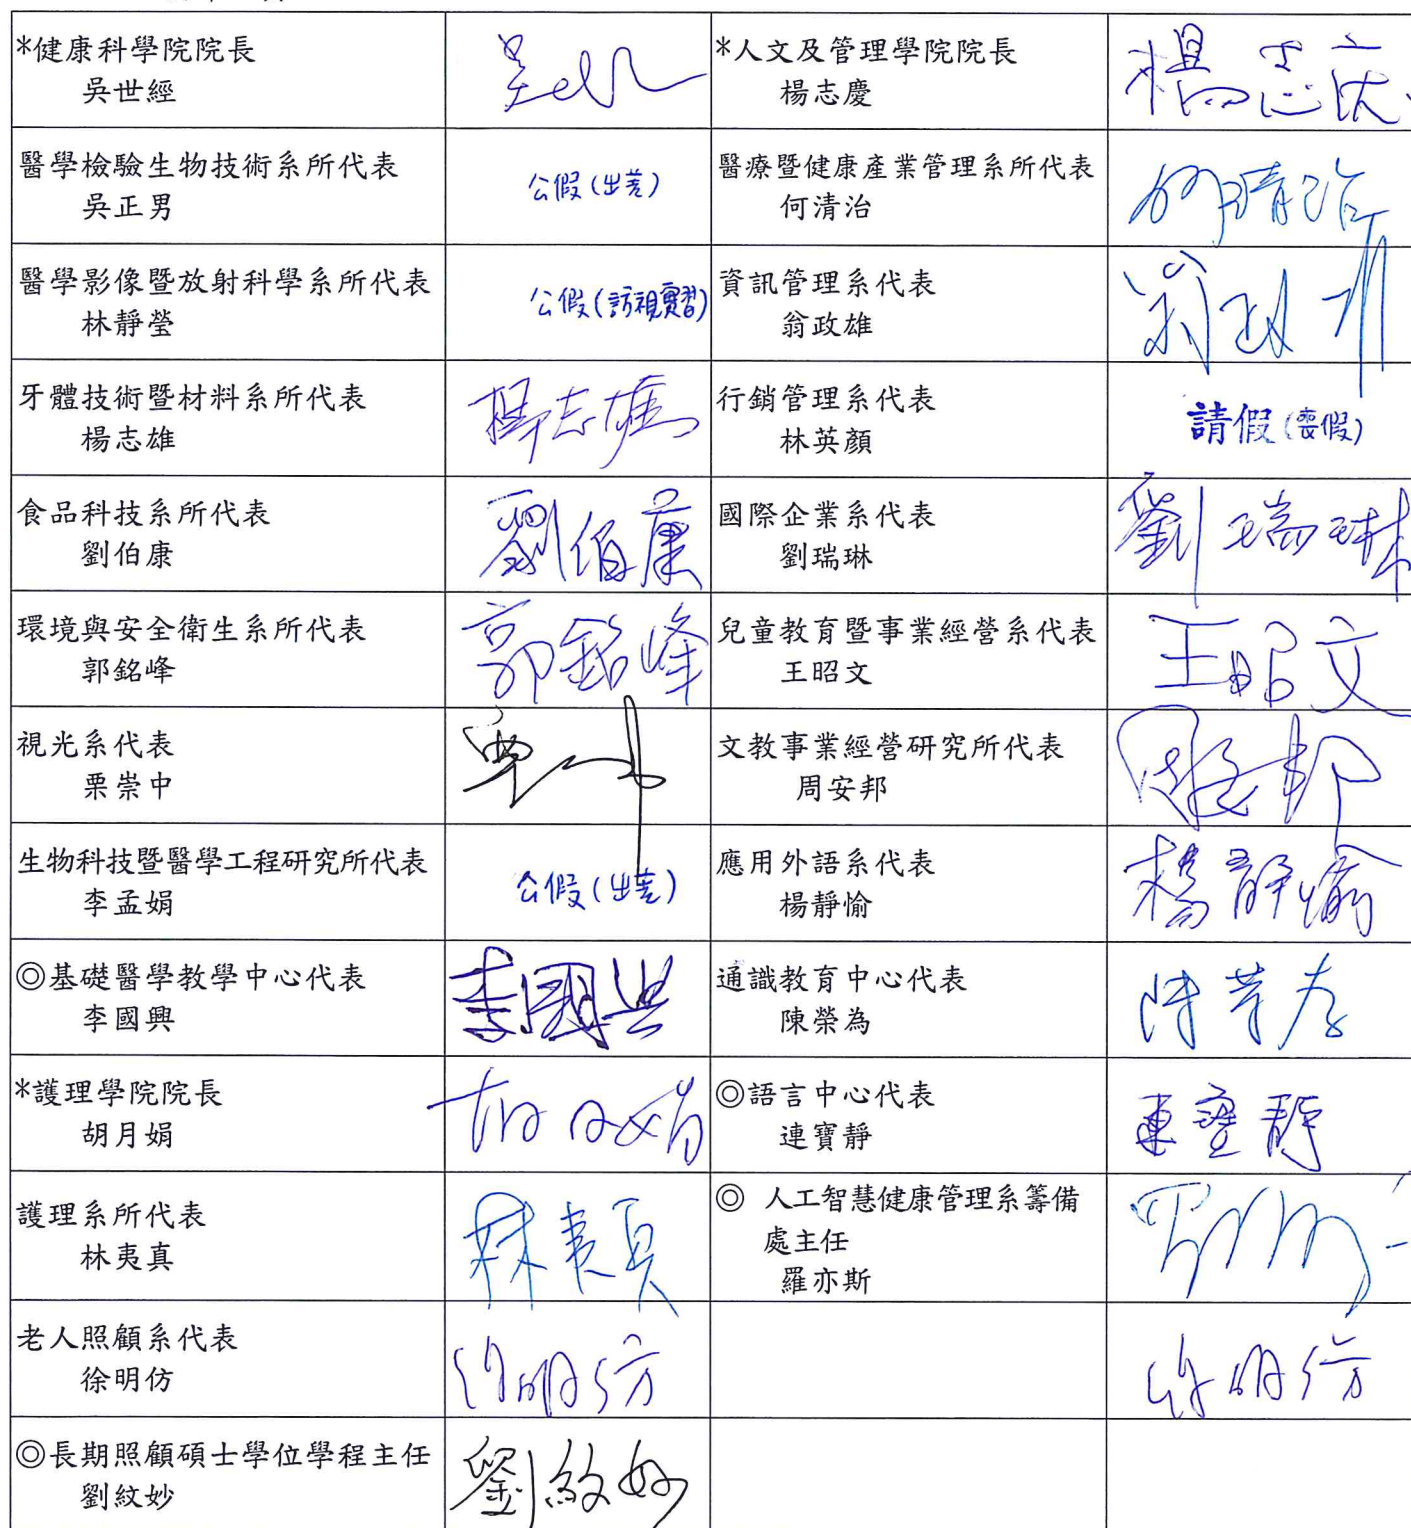 *健康科學院院長
吳世經
*人文及管理學院院長
楊志慶
楊志庆
醫學檢驗生物技術系所代表
吳正男
公假(出差)
醫療暨健康產業管理系所代表
何清治
何清治
醫學影像暨放射科學系所代表
林靜瑩
公假(訪視實習)
資訊管理系代表
翁政雄
牙體技術暨材料系所代表
楊志雄
楊志雄
行銷管理系代表
林英顏
請假(喪假)
食品科技系所代表
劉伯康
劉伯康
國際企業系代表
劉瑞琳
劉瑞琳
環境與安全衛生系所代表
郭銘峰
郭銘峰
兒童教育暨事業經營系代表
王昭文
王昭文
視光系代表
栗崇中
文教事業經營研究所代表
周安邦
生物科技暨醫學工程研究所代表
李孟娟
公假(出差)
應用外語系代表
楊靜愉
楊靜愉
◎基礎醫學教學中心代表
李國興
李國興
通識教育中心代表
陳榮為
*護理學院院長
胡月娟
胡月娟
◎語言中心代表
連寶靜
連寶靜
護理系所代表
林夷真
林夷真
◎ 人工智慧健康管理系籌備
處主任
羅亦斯
老人照顧系代表
徐明仿
徐明仿
徐明仿
◎長期照顧碩士學位學程主任
劉紋妙
劉紋妙